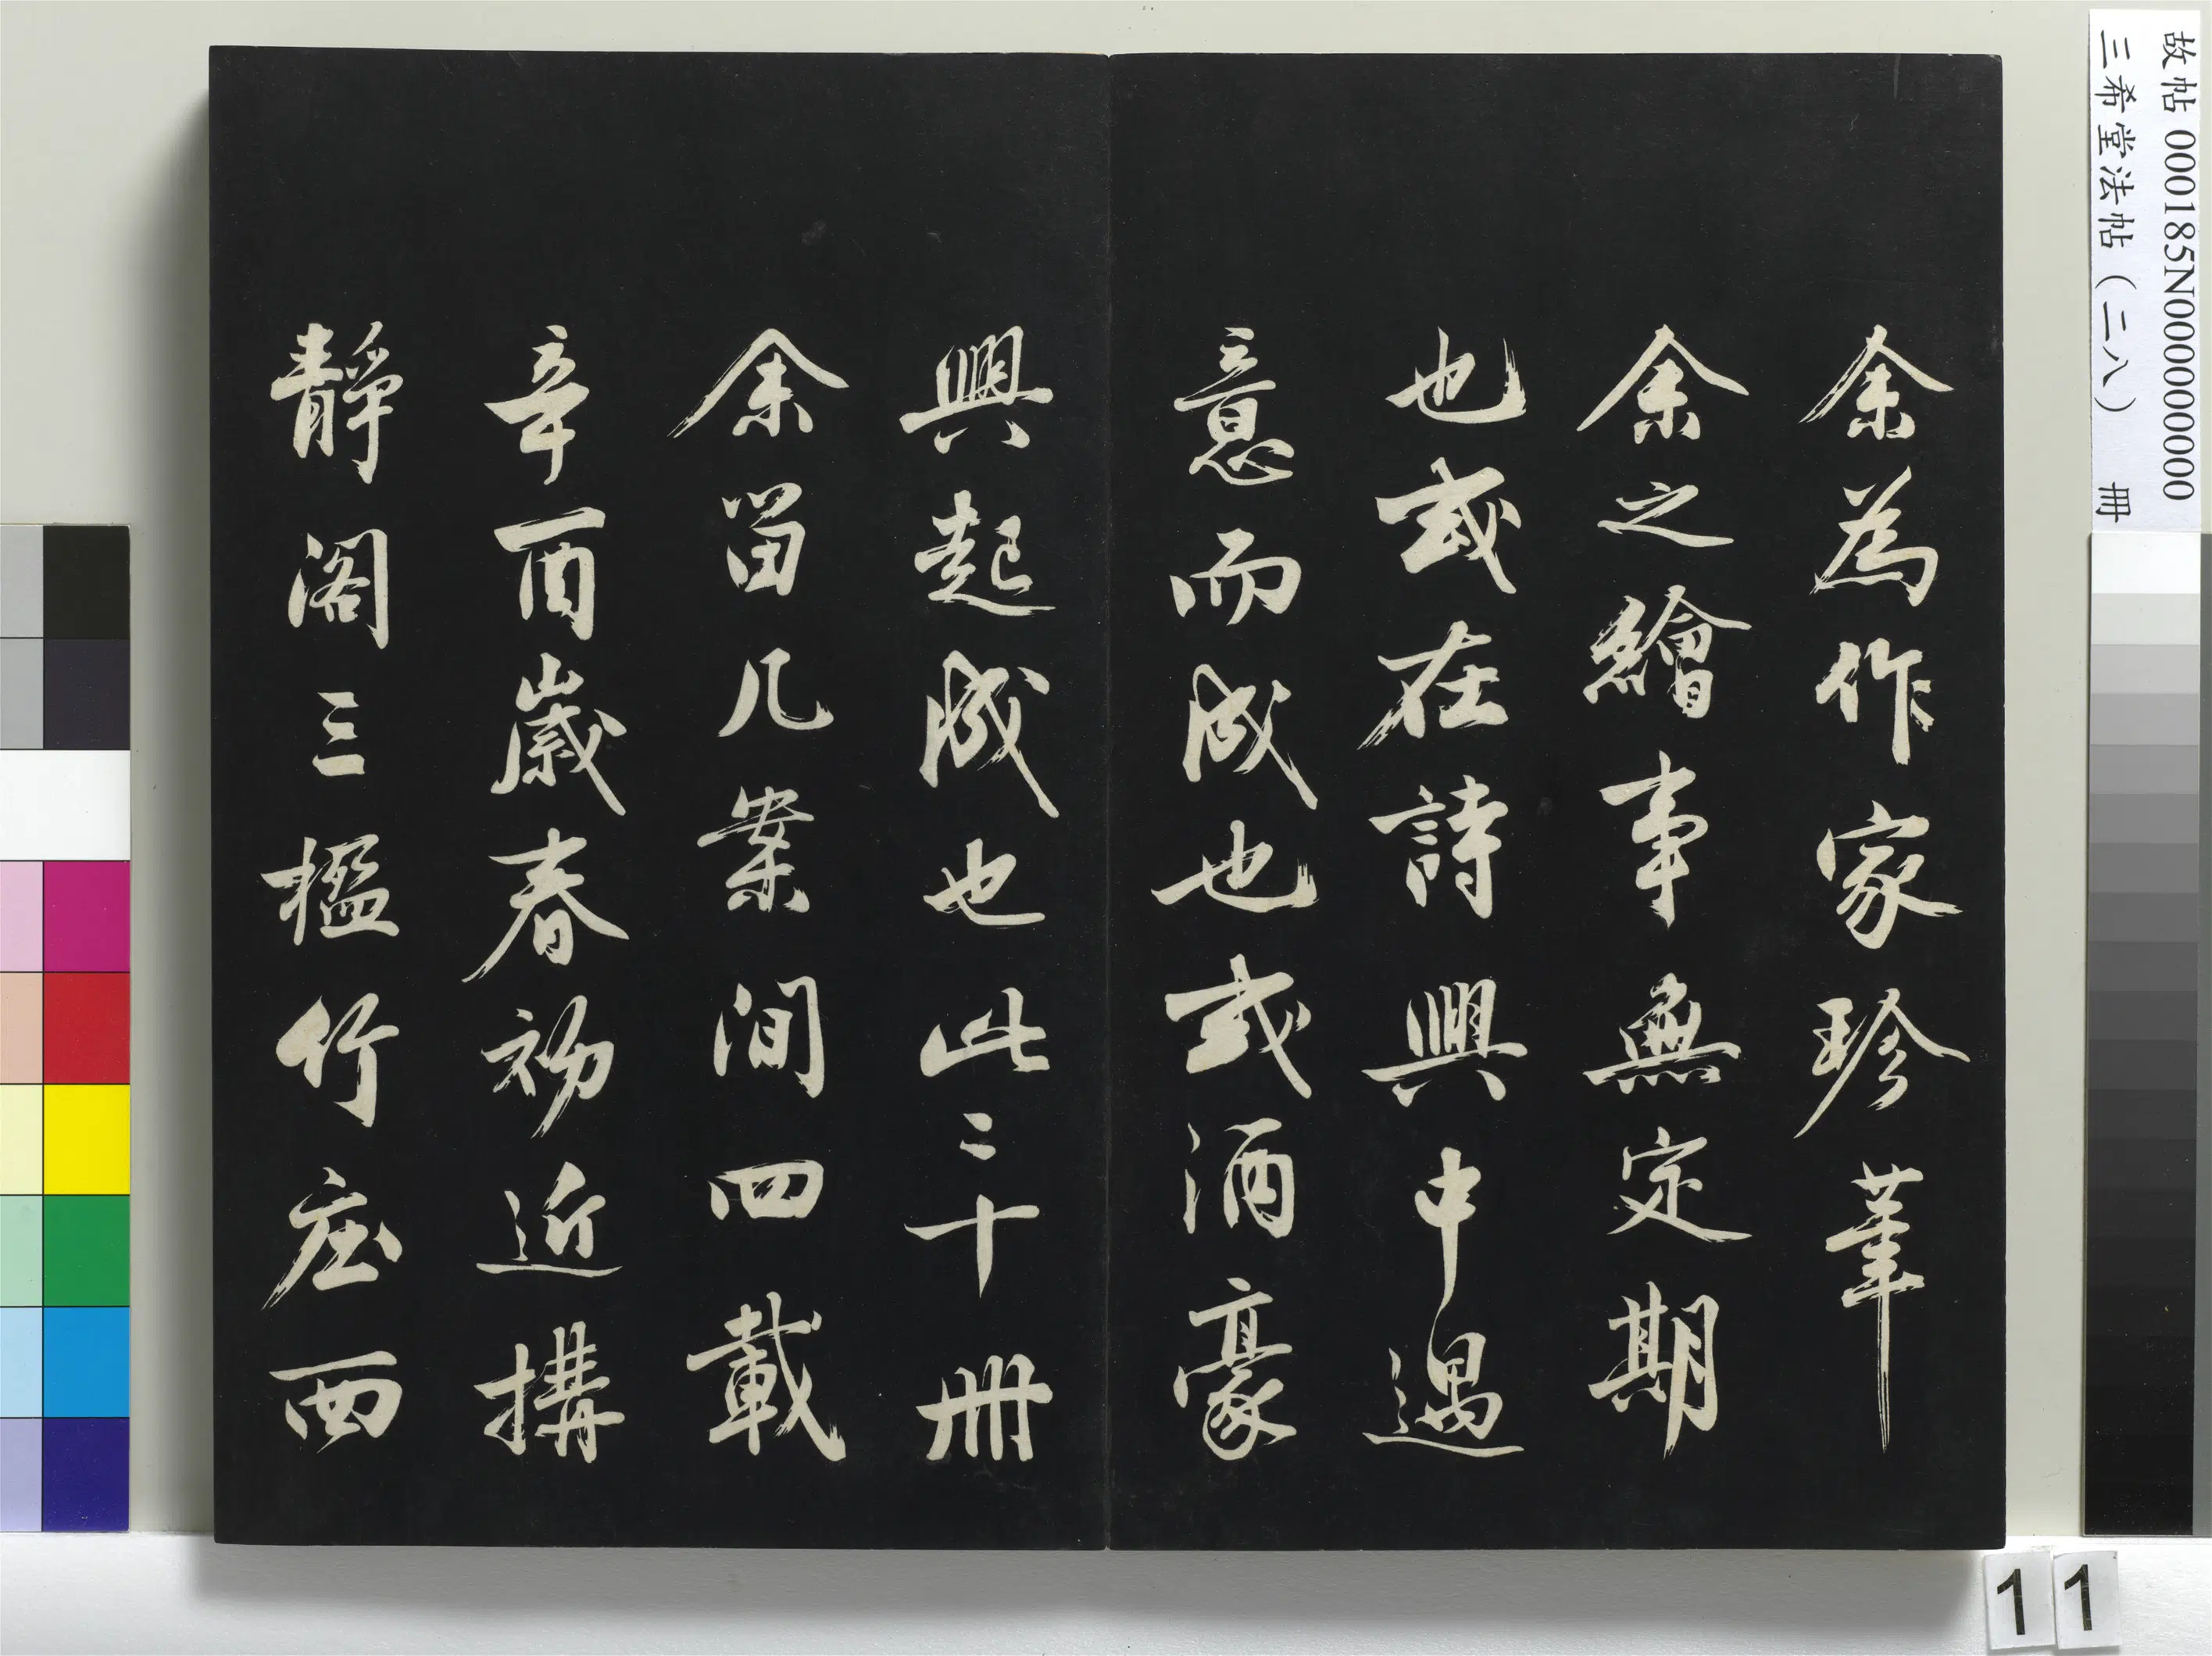 故帖 000185N000000000
三希堂法帖（二八） 冊
余為作家珍筆
余之繪事無定期
也或在詩興中遇
意而成也或酒豪
興起成也此二十冊
余留几案間四載
辛酉歲春初近搆
靜閣三楹竹庄西
11